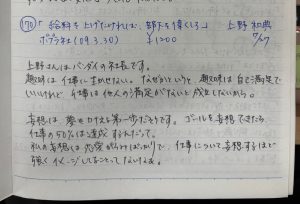 (70)「給料を上げたければ、部下を偉くしろ」 上野和典
ポプラ社(09.3.30) ¥1200 7/27
上野さんはバンダイの社長です。
趣味は仕事に生かせない。なぜかというと、趣味は自己満足で
いいけれど、仕事は他人の満足がないと成立しないから。
妄想は夢をかなえる第一歩だそうです。ゴールを妄想できたら、
仕事の50%は達成するんだって。
私の妄想は恋愛がらみばっかりで、仕事について妄想するほど
強くイメージしてることってないなぁ。